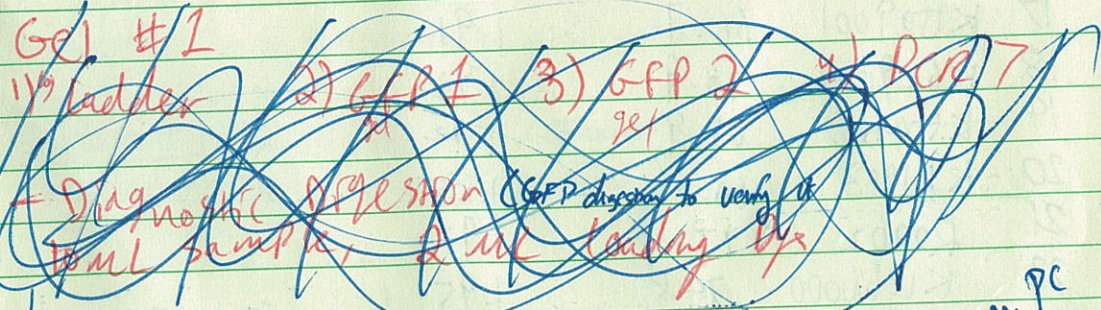 Gel #1
1) ladder 2) GFP 1 3) GFP 2 4) PCR 7
gel gel
- Diagnostic Digestion (GFP digestion to verify it
10mL sample, 2 mL loading Dye
PC